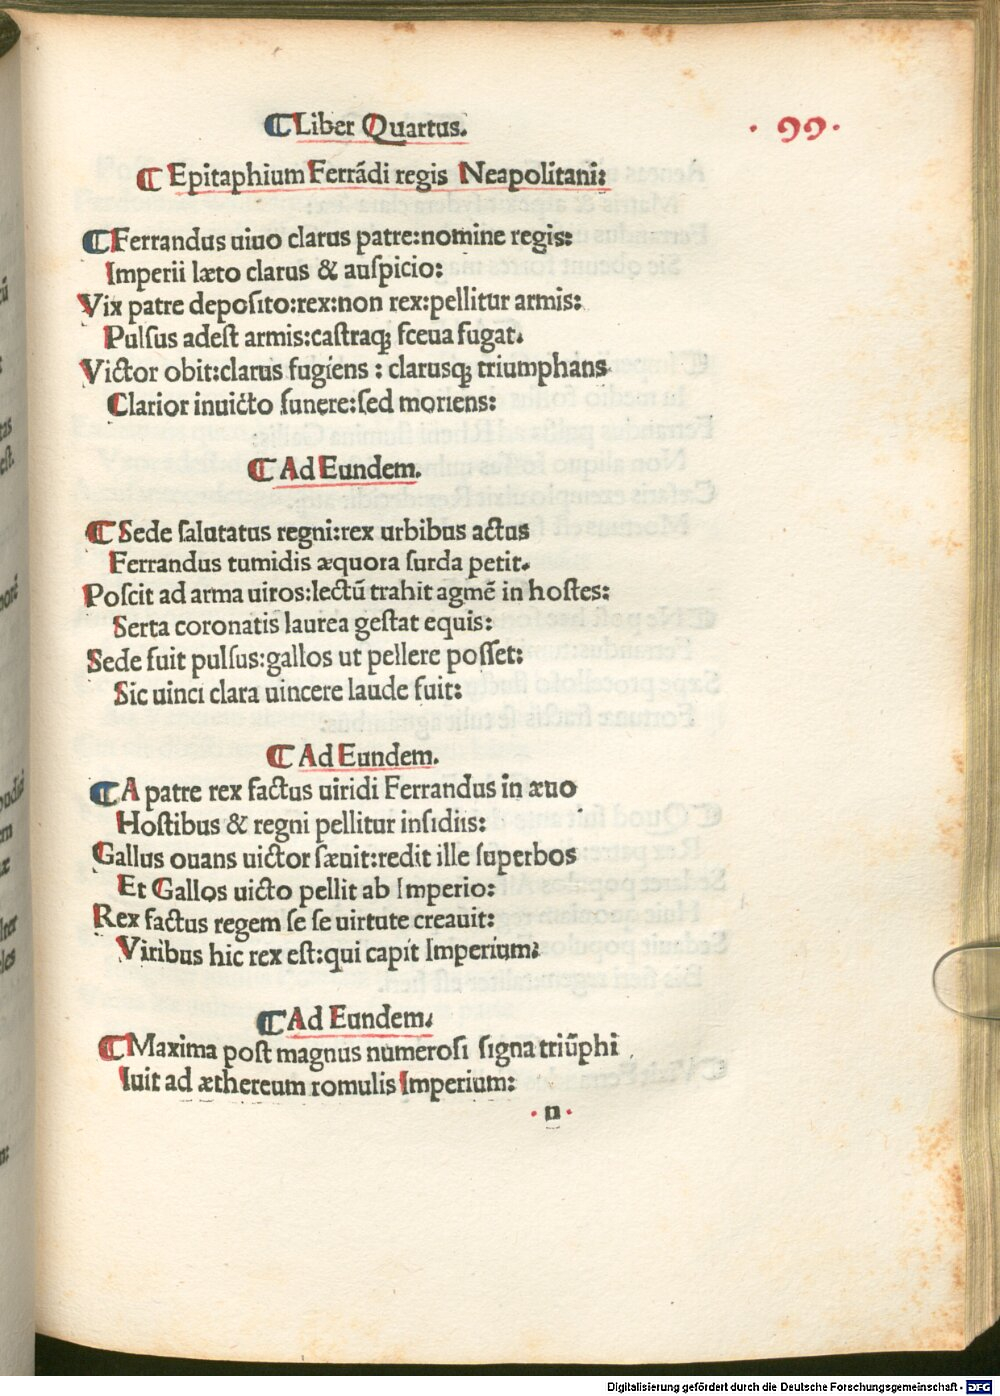 ¶Liber Quartus.
·99·
¶Epitaphium Ferrãdi regis Neapolitani:
¶Ferrandus uiuo clarus patre:nomine regis:
Imperii læto clarus & auſpicio:
Vix patre depoſito:rex:non rex:pellitur armis:
Pulſus adeſt armis:caſtraqꝫ ſceua fugat.
Victor obit:clarus fugiens : clarusqꝫ triumphans
Clarior inuicto funere:ſed moriens:
¶Ad Eundem.
¶Sede ſalutatus regni:rex urbibus actus
Ferrandus tumidis æquora ſurda petit.
Poſcit ad arma uiros:lectũ trahit agmẽ in hoſtes:
Serta coronatis laurea geſtat equis:
Sede fuit pulſus:gallos ut pellere poſſet:
Sic uinci clara uincere laude fuit:
¶Ad Eundem.
¶A patre rex factus uiridi Ferrandus in æuo
Hoſtibus & regni pellitur inſidiis:
Gallus ouans uictor ſæuit:redit ille ſuperbos
Et Gallos uicto pellit ab Imperio:
Rex factus regem ſe ſe uirtute creauit:
Viribus hic rex eſt:qui capit Imperium:
¶Ad Eundem.
¶Maxima poſt magnus numeroſi ſigna triũphi
Iuit ad æthereum romulis Imperium:
·n·
Digitalisierung gefördert durch die Deutsche Forschungsgemeinschaft - DFG